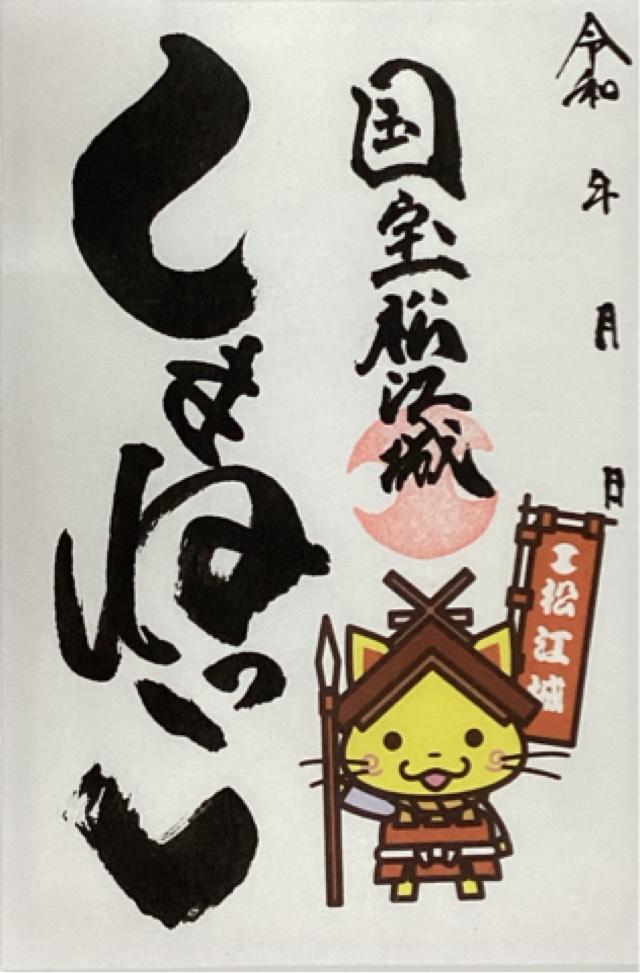 令和 年 月 日
国宝松江城
しまねっこ
松江城